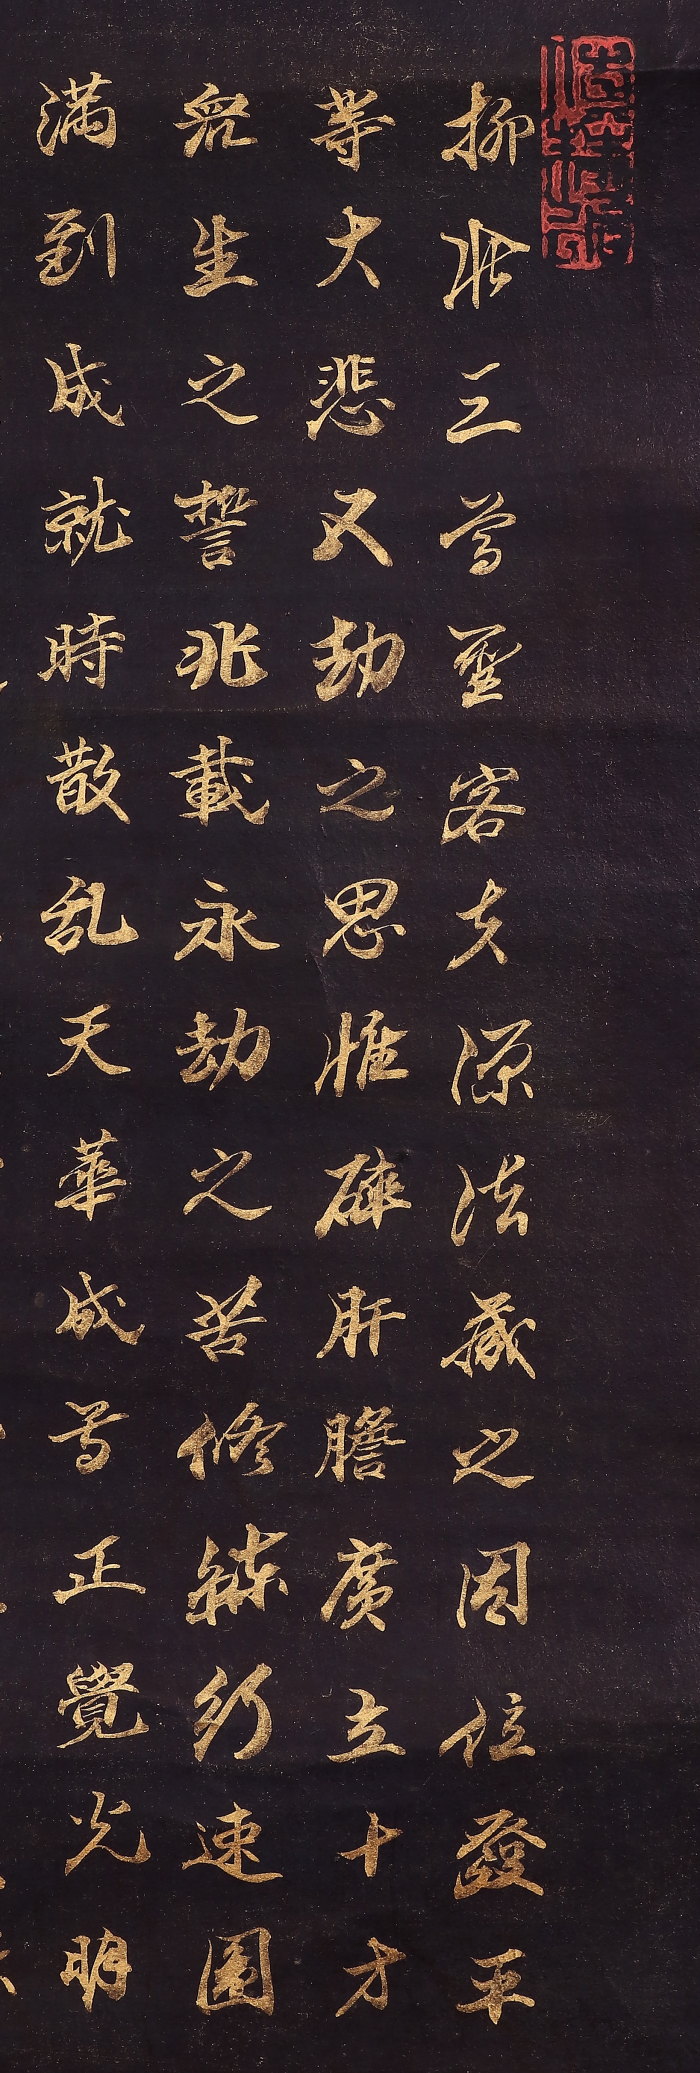 抑此三尊聖容夫源法藏之因位發平
等大悲五劫之思惟碎肝膽廣立十方
衆生之誓兆載永劫之苦修練行速圓
満到成就時散乱天華成等正覺光明